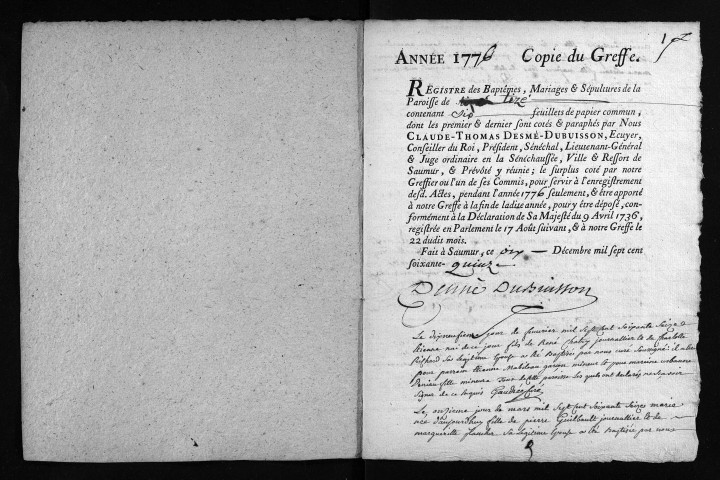 1
ANNÉE 1776 Copie du Greffe.
REGISTRE des Baptêmes, Mariages & Sépultures de la
Paroisse de Lézé
contenant six feuillets de papier commun,
dont les premier & dernier sont cotés & paraphés par Nous
CLAUDE-THOMAS DESMÉ-DUBUISSON, Ecuyer,
Conseiller du Roi, Président, Sénéchal, Lieutenant-Général
& Juge ordinaire en la Sénéchaussée, Ville & Ressort de
Saumur, & Prévôté y réunie; le surplus coté par notre
Greffier ou l'un de ses Commis, pour servir à l'enregistrement
desd. Actes, pendant l'année 1776 seulement, & être apporté
à notre Greffe à la fin de ladite année, pour y être déposé, con-
formément à la Déclaration de Sa Majesté du 9 Avril 1736,
registrée en Parlement le 17 Août suivant, & à notre Greffe le
22 dudit mois.
Fait à Saumur, ce Décembre mil sept cent
soixante-quinze
Desmé Dubuisson
Le jour de fevrier mil Sept Cent Soixante Seize
Etienne né de ce jour fils de René journallier et de charlotte
Sa legitime Epouse a été baptisé par nous curé Soussigné il a eu
pour parrain Etienne garçon mineur et pour marenne
fille mineure tout de cette paroisse les quels ont declarés ne Scavoir
Signer de ce Enquis
Le onzieme jour de mars mil Sept Cent Soixante Seize marie
née d'aujourdhuy fille de pierre Guibault journallier et de
margueritte Sa legitime Epouse a été baptisée par nous